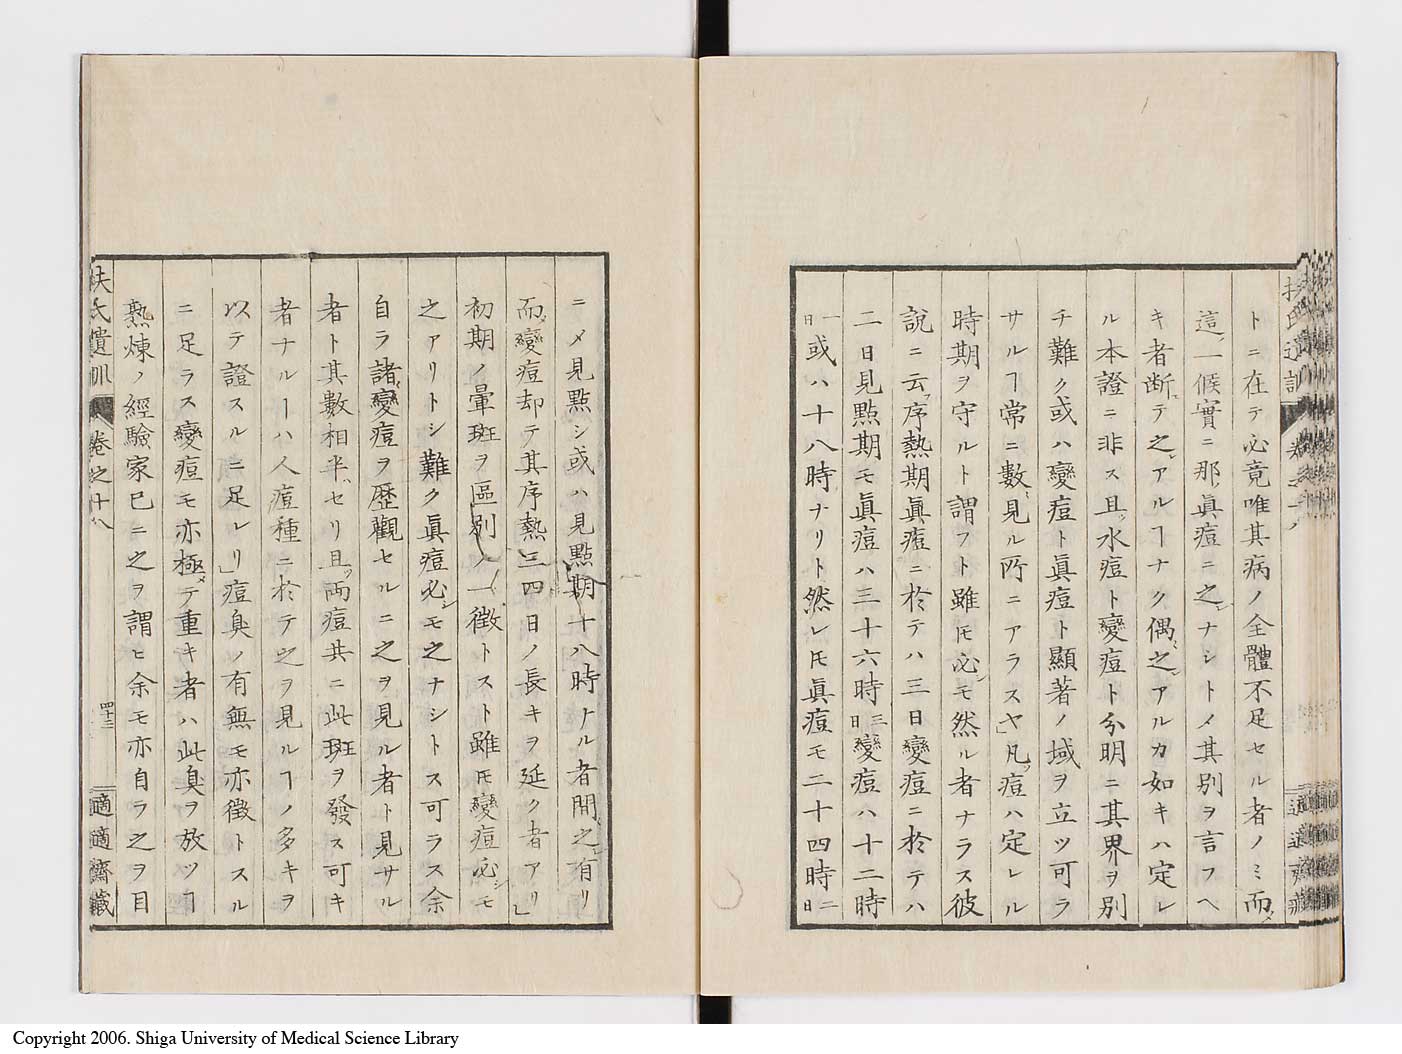 トニ在テ必竟唯其病ノ全體不足セル者ノミ而メ
這ノ一候實ニ那ノ眞痘ニ之レナシトメ其別ヲ言フヘ
キ者断シテ之レアルヿナク偶マ之レアルカ如キハ定レ
ル本證ニ非ス且ツ水痘ト變痘ト分明ニ其界ヲ別
チ難ク或ハ變痘ト眞痘ト顯著ノ域ヲ立ツ可ラ
サルヿ常ニ數〻見ル所ニアラスヤ」凡ソ痘ハ定レル
時期ヲ守ルト謂フト雖𪜈必シモ然ル者ナラス彼
説ニ云ク序熱期眞痘ニ於テハ三日變痘ニ於テハ
二日見點期モ眞痘ハ三十六時三日變痘ハ十二時
一日或ハ十八時ナリト然レ𪜈眞痘モ二十四時二日
ニメ見點シ或ハ見點期十八時ナル者間之有リ
而メ變痘却テ其序熱三四日ノ長キヲ延ク者アリ」
初期ノ暈斑ヲ區別ノ一徴トスト雖𪜈變痘必シモ
之アリトシ難ク眞痘必シモ之ナシトス可ラス余
自ラ諸變痘ヲ歴觀セルニ之ヲ見ル者ト見サル
者ト其數相半セリ且ツ兩痘共ニ此斑ヲ發ス可キ
者ナルヿハ人痘種ニ於テ之ヲ見ルヿノ多キヲ
以テ證スルニ足レリ」痘臭ノ有無モ亦徴トスル
ニ足ラス變痘モ亦極メテ重キ者ハ此臭ヲ放ツヿ
熟煉ノ經驗家已ニ之ヲ謂ヒ余モ亦自ラ之ヲ目
扶氏遺訓 卷之十八 四十三 適適齋藏
Copyright 2006. Shiga University of Medical Science Library